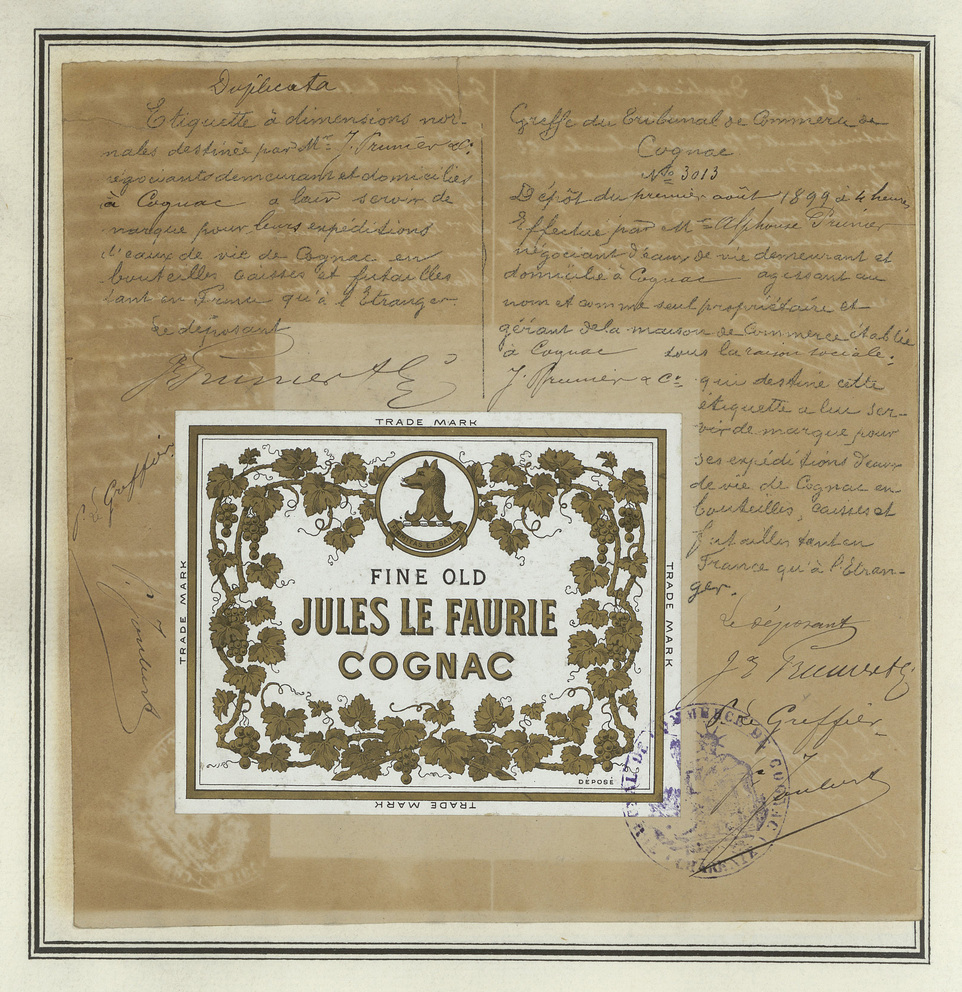 Duplicata
Etiquette à dimensions nor-
males destinée par Mrs J. Prunier & Co
négociants demeurant et domiciliés
à Cognac a leur servir de
marque pour leurs expéditions
d'eaux de vie de Cognac en
bouteilles caisses et futailles
tant en France qu'à l'Etranger.
Le déposant
J Prunier & Co
Pr le Greffier
Greffe du Tribunal de Commerce de
Cognac
No 3013
Dépôt du premier août 1899 à 4 heures
Effectué par Mr Alphonse Prunier
négociant d'eaux de vie demeurant et
domicilié à Cognac agissant au
nom et comme seul propriétaire et
gérant de la maison de Commerce établie
à Cognac sous la raison sociale:
J. Prunier & Co qui destine cette
étiquette a lui ser-
vir de marque pour
ses expéditions d'eaux
de vie de Cognac en
bouteilles, caisses et
futailles tant en
France qu'à l'Etran-
ger.
Le déposant
J Prunier & Co
P. le Greffier
TRADE MARK
TRADE MARK
TRADE MARK
TRADE MARK
FINE OLD
JULES LE FAURIE
COGNAC
DÉPOSÉ
TRIBUNAL DE COMMERCE DE COGNAC
CHARENTE